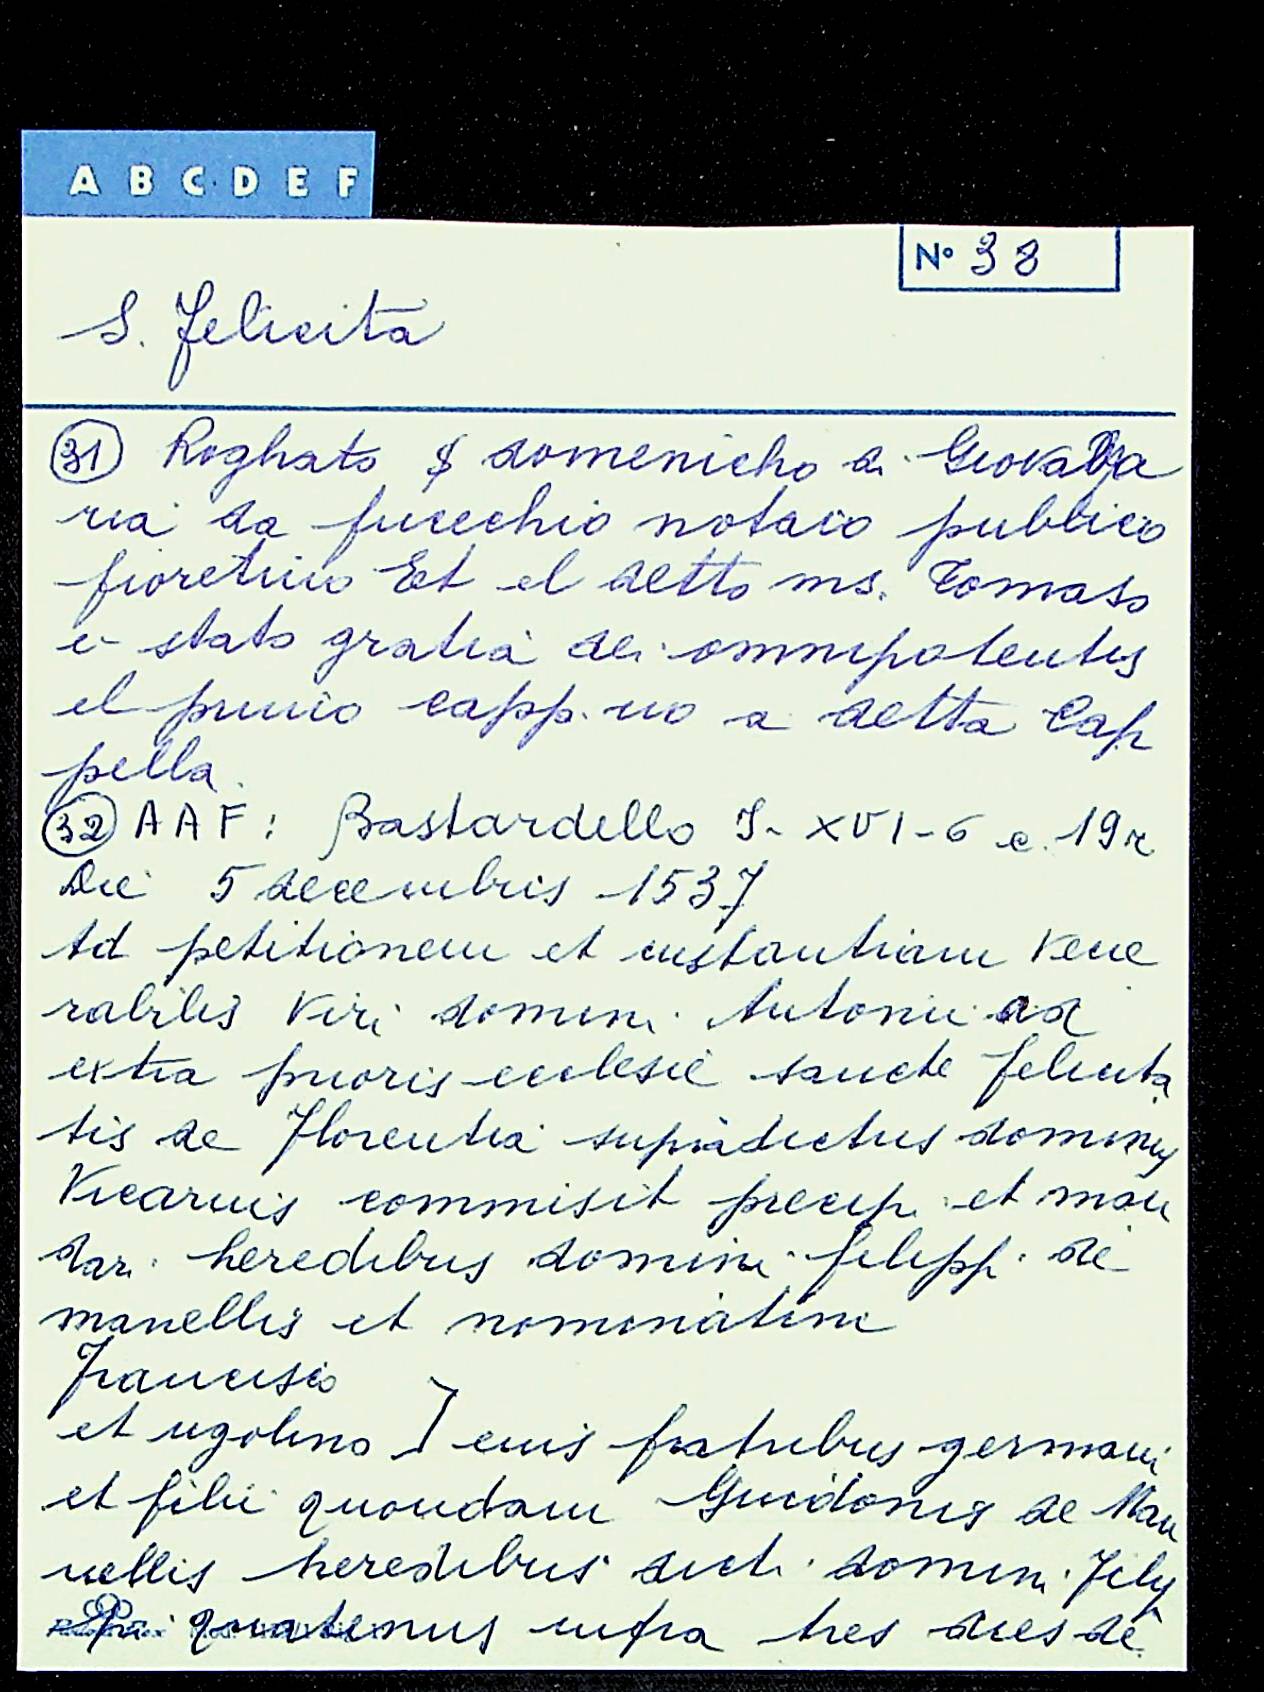 A B C D E F
N° 38
S. Felicita
31 Roghato $ domenicho di Giova
ria da fucechio notaio publico
fioretino Et el detto ms. Tomaso
e stato gratia dei omnipotentis
el primo capp.no a detta Cap
pella.
32 AAF: Bastardello I-XVI-6 c. 19r
Die 5 decembris 1537
Ad petitionem et instantiam Vene
rabilis Viri domini Antonii
extra prioris ecclesie sancte felicita
tis de Florentia supradictus dominus
Vicarius commisit precip. et man
dari heredibus domini filipp. de
manellis et nominatim
Francisco
et ugolino ] eius fratribus germani
et filii quondam Guidonis de Man
nellis heredibus dicti domini Fily
ppi quatenus infra tres dies de